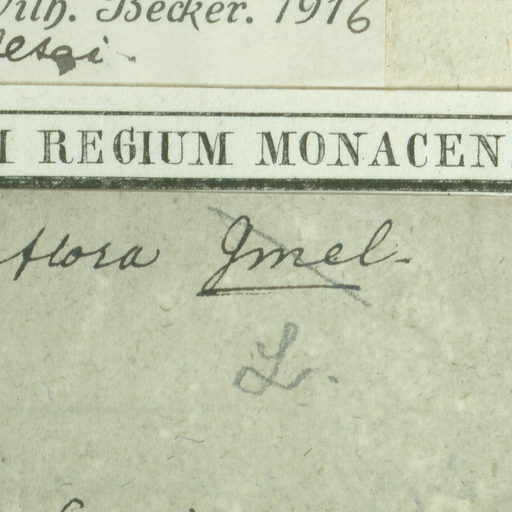 Wilh. Becker. 1916
M REGIUM MONACEN
flora Gmel.
L.